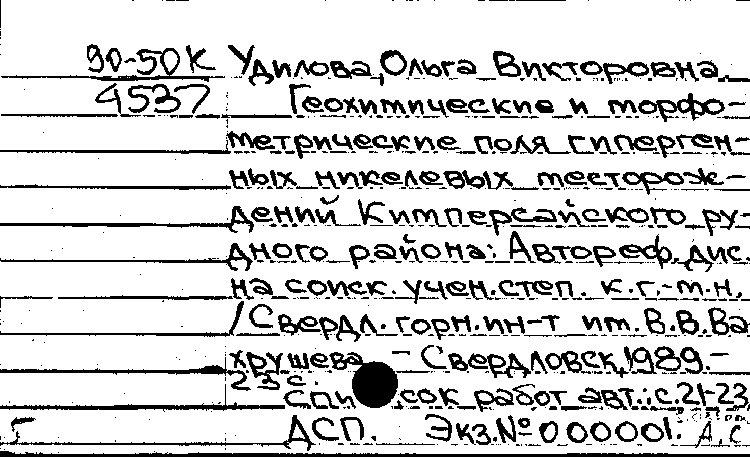 90-50К Удилова, Ольга Викторовна.
4537 Геохимические и морфо-
метрические поля гиперген-
ных никелевых месторож-
дений Кимперсайского ру-
дного района: Автореф. дис.
на соиск. учен. степ. к.г.-м.н.
/Свердл. горн. ин-т им. В.В. Ва-
хрушева. – Свердловск, 1989. –
23 с.
Список работ авт.: с. 21-23
5 ДСП. Экз. № 000001. А, С